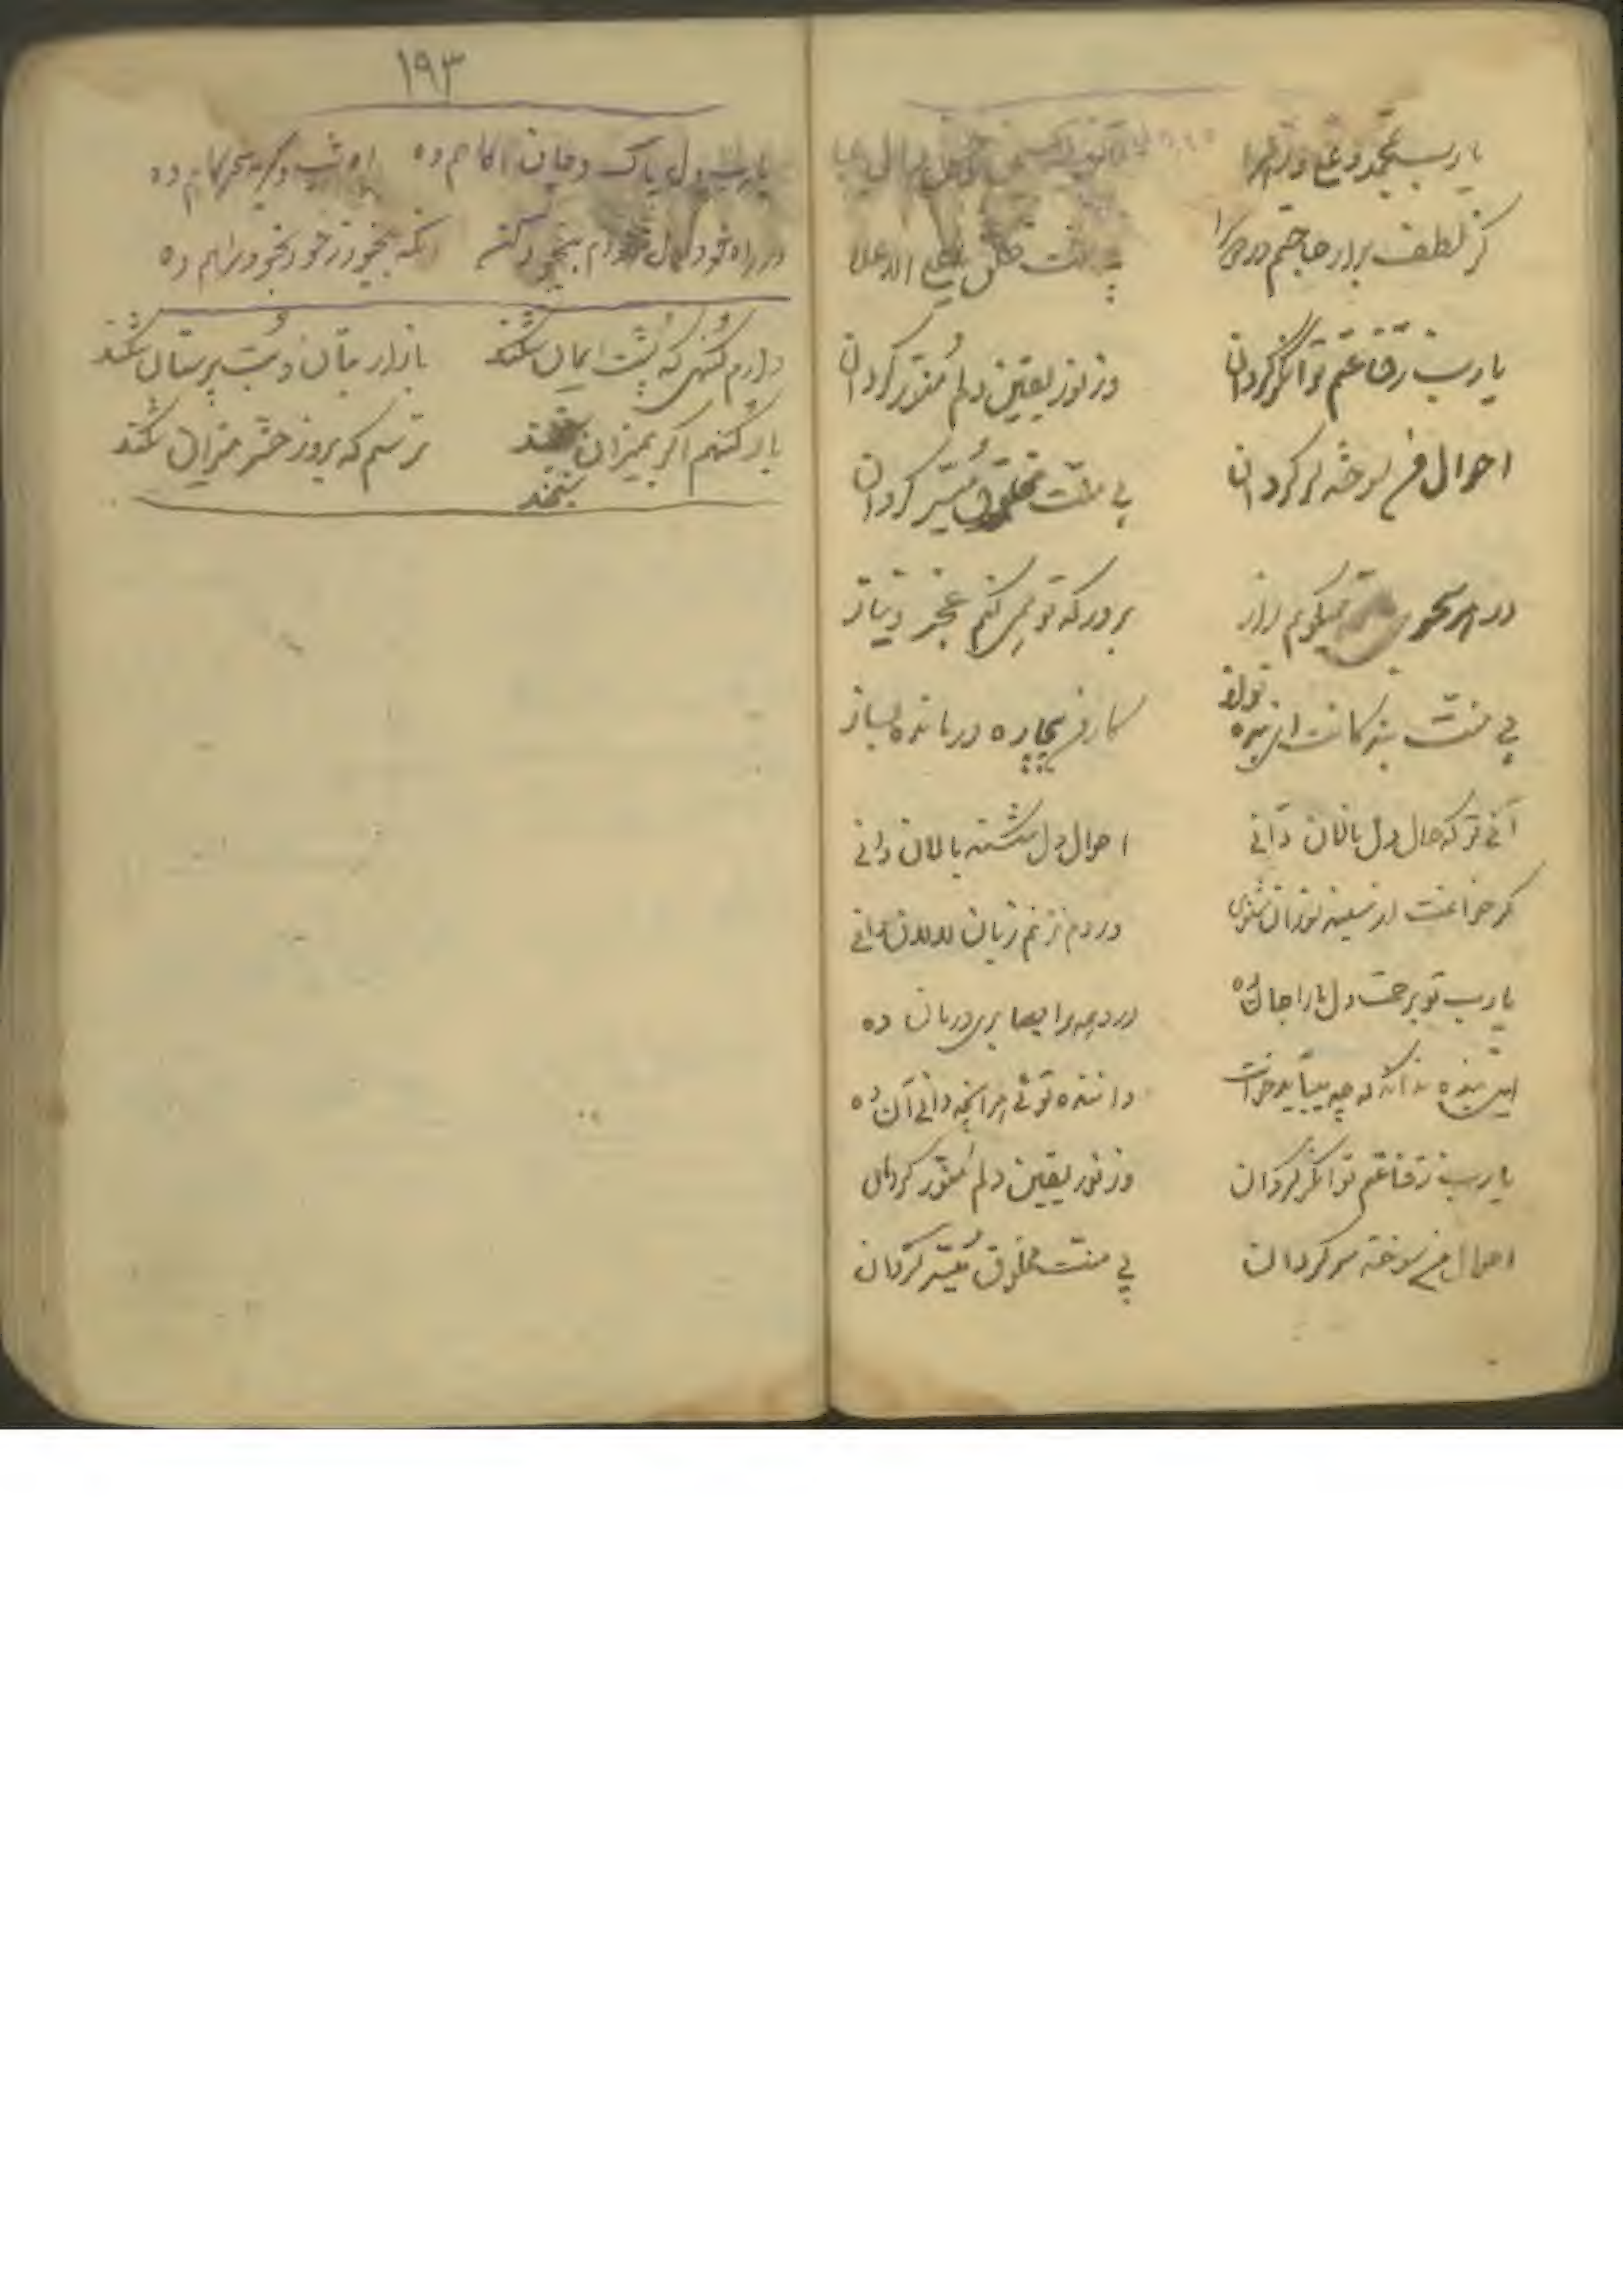 یارب بمحمد و علی و زهرا
یارب بحسین و حسن
کز لطف برار حاجتم در دو سرا
بی منت خلق یا علی الاعلا
یارب ز قناعتم توانگر گردان
وز نور یقین دلم مُنوّر گردان
احوال من سوخته سر گردان
بی منّت مخلوق مُیسّر گردان
در هر سحری میگویم راز
بر درگه تو می کنم عجز و نیاز
بی منت بندگانت ای بنده نواز
کار من بیچاره درمانده بساز
آنی تو که حال دل نالان دانی
احوال دل شکسته بالان دانی
گر خوانمت از سینه سوزان شنوی
ور دم نزنم زبان لالان دانی
یارب تو برحمت دل ما را جان ده
درد همه را بصابری درمان ده
این بنده نداند که چه میباید خواست
داننده توئی هر آنچه دانی آن ده
یارب ز قناعتم توانگر گردان
وز نور یقین دلم مُنوّر گردان
احوال من سوخته سر گردان
بی منت مخلوق مُیسّر گردان
۱۹۳
یارب دل پاک و جان آگاهم ده
آه شب و گریه سحرگاهم ده
در راه خود اول ام بیخود کن
انگه بیخود ز خود بخود راهم ده
دارم گنهی که پُشت ایمان شکند
بازار بتان و بُت پرستان شکند
بار گنهم اگر بمیزان سنجند
ترسم که بروز حشر میزان شکند